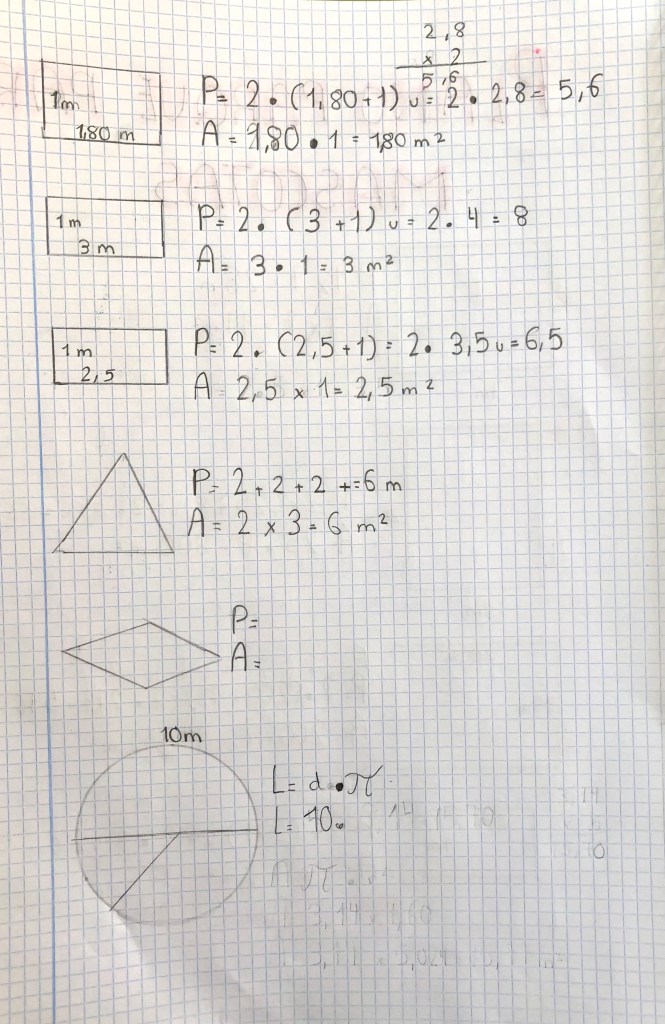 2,8
x 2
5,6
1m
1,80 m
P= 2 • (1,80+1) u = 2 • 2,8 = 5,6
A = 1,80 • 1 = 1,80 m²
MASCOTAS
1 m
3 m
P= 2 • (3 +1) u = 2 • 4 = 8
A= 3 • 1 = 3 m²
1 m
2,5
P= 2 • (2,5+1) = 2 • 3,5 u = 6,5
A = 2,5 x 1 = 2,5 m²
P= 2 + 2 + 2 += 6 m
A = 2 x 3 = 6 m²
P=
A=
10m
L= d • π
L= 10 •